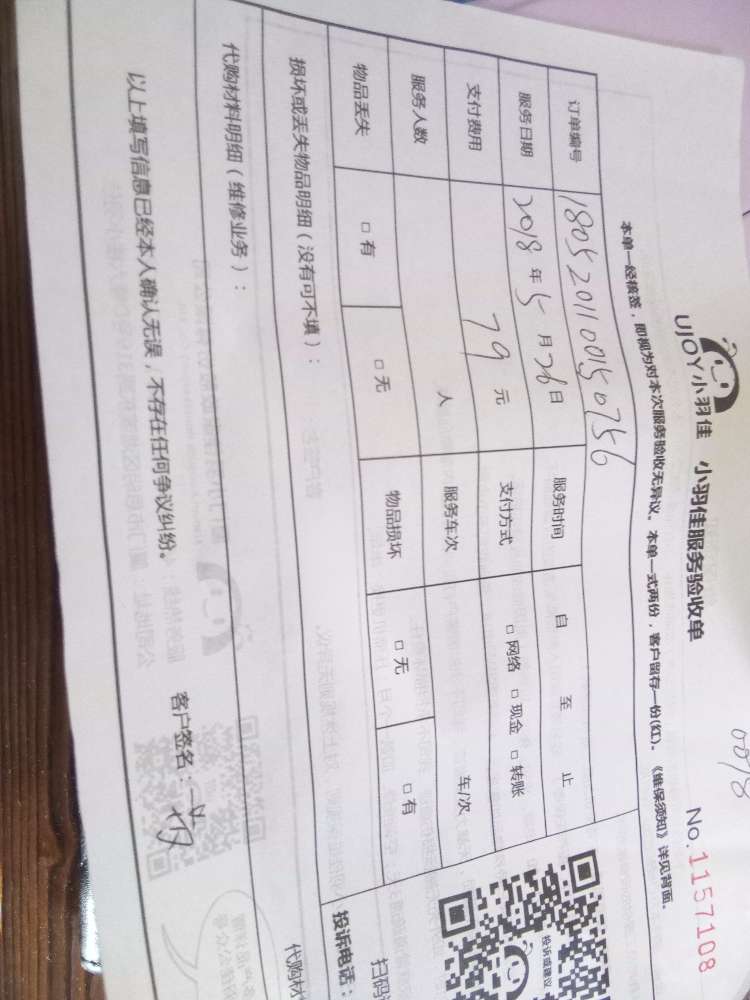 UJOY小羽佳 小羽佳服务验收单
No.1157108
本单一经核签，即视为对本次服务验收无异议。本单一式两份，客户留存一份(红)。《维保须知》详见背面.
订单编号 180520110015 0756
服务日期 2018年5月26日 服务时间 自 至 止
支付费用 79元 支付方式 □ 网络 □ 现金 □ 转账
服务人数 人 服务车次 车/次
物品丢失 □ 有 □ 无 物品损坏 □ 无 □ 有
损坏或丢失物品明细（没有可不填）：
代购材料明细（维修业务）：
以上填写信息已经本人确认无误，不存在任何争议纠纷。
客户签名：
投诉或建议
扫码
投诉电话：
代购材